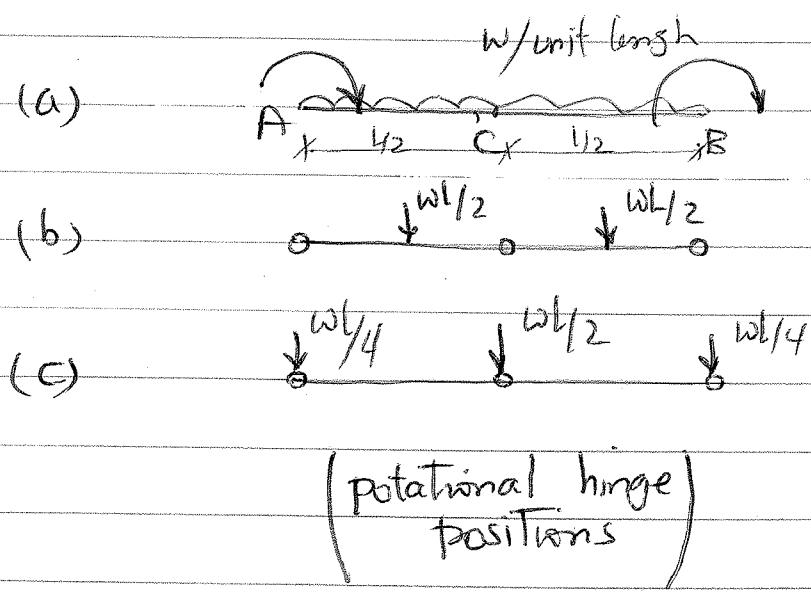 w/unit length
(a)
A L/2 C L/2 B
(b) wl/2 wL/2
(c) wl/4 wl/2 wl/4
(potational hinge
positions)